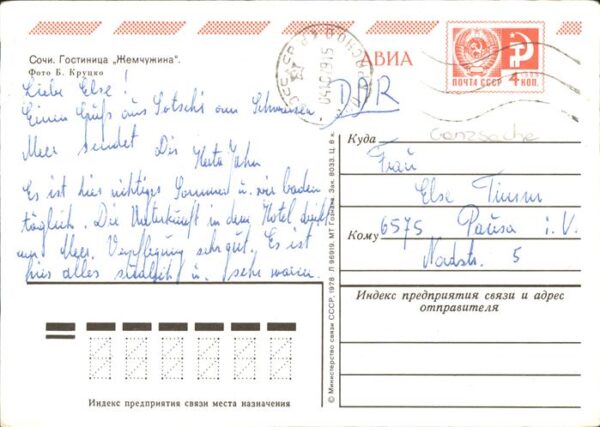 Сочи. Гостиница „Жемчужина".
Фото Б. Круцко
АВИА
ПОЧТА СССР 4 КОП.
DDR
Liebe Else!
Einen Gruß aus Sotschi am Schwarzen
Meer sendet Dir Herta Jahn
Es ist hier richtiger Sommer u. wir baden
täglich. Die Unterkunft in dem Hotel direkt
am Meer. Verpflegung sehr gut. Es ist
hier alles südlich u. sehr warm.
Куда
Ganzsache
Frau
Else Timm
Кому 6575 Pausa i. V.
Nordstr. 5
Индекс предприятия связи и адрес
отправителя
© Министерство связи СССР, 1978. Л 96919. МТ Гознака. Зак. 8033. Ц. 8 к.
Индекс предприятия связи места назначения